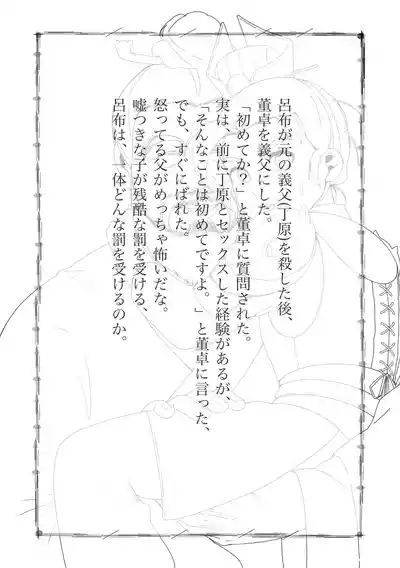 呂布が元の義父(丁原)を殺した後、
董卓を義父にした。
「初めてか？」と董卓に質問された。
実は、前に丁原とセックスした経験があるが、
「そんなことは初めてですよ。」と董卓に言った、
でも、すぐにばれた。
怒ってる父がめっちゃ怖いだな。
嘘つきな子が残酷な罰を受ける、
呂布は、一体どんな罰を受けるのか。